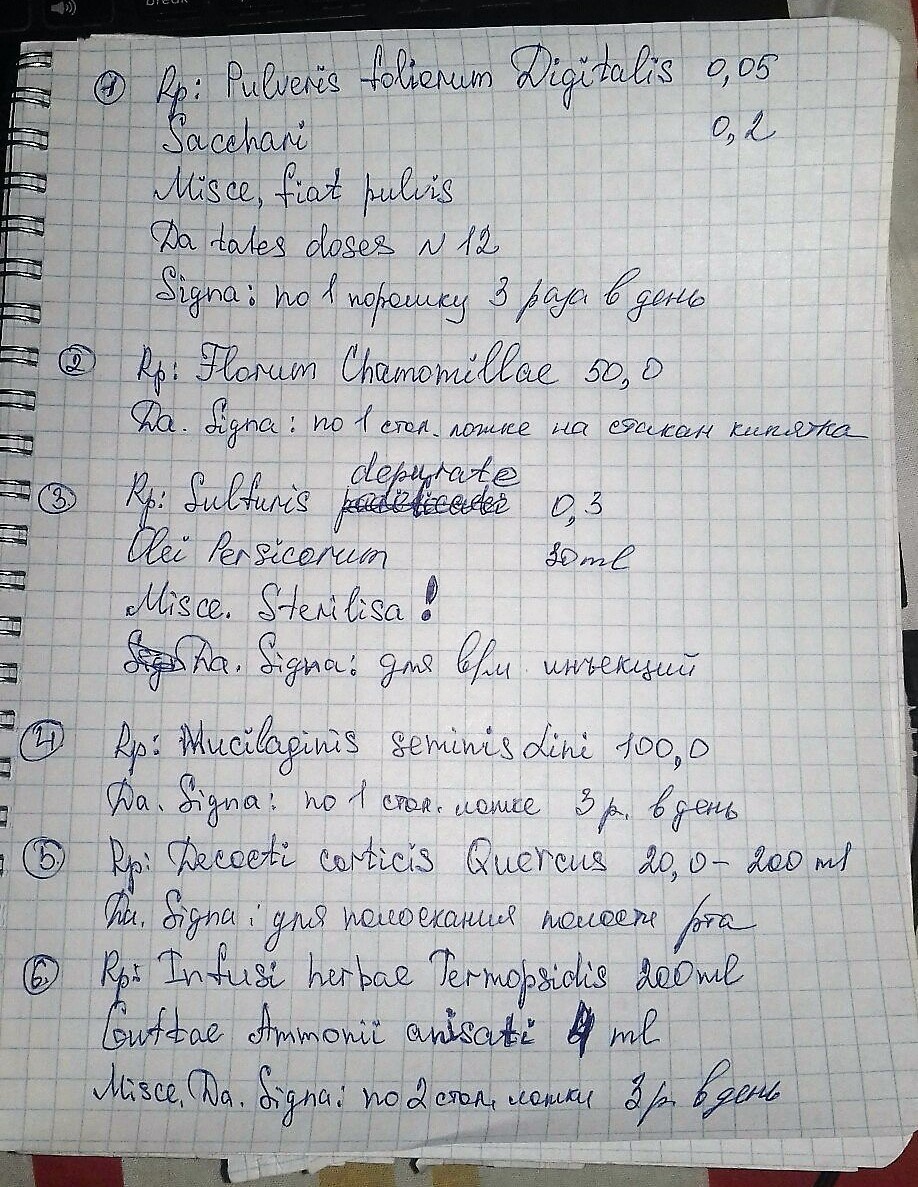 break
① Rp: Pulveris foliorum Digitalis 0,05
Sacchari 0,2
Misce, fiat pulvis
Da tales doses N 12
Signa: по 1 порошку 3 раза в день
② Rp: Florum Chamomillae 50,0
Da. Signa: по 1 стол. ложке на стакан кипятка
depurate
③ Rp: Sulfuris 0,3
Olei Persicorum 30ml
Misce. Sterilisa!
Da. Signa: для в/м инъекций
④ Rp: Mucilaginis seminis Lini 100,0
Da. Signa: по 1 стол. ложке 3 р. в день
⑤ Rp: Decocti corticis Quercus 20,0 - 200 ml
Da. Signa: для полоскания полости рта
⑥ Rp: Infusi herbae Termopsidis 200ml
Guttae Ammonii anisati 4 ml
Misce. Da. Signa: по 2 стол. ложки 3 р. в день